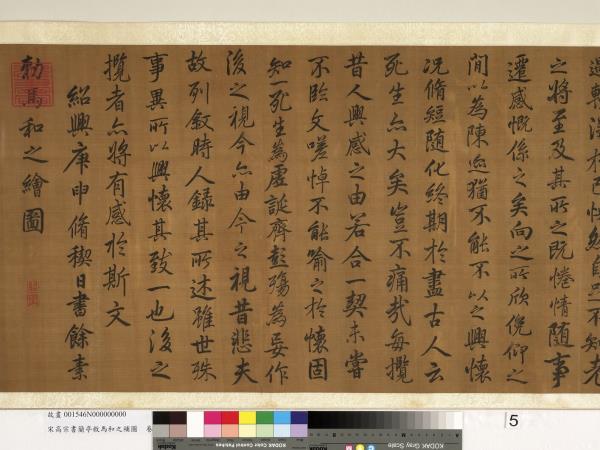 自足不知老
之將至及其所之既惓情隨事
遷感慨係之矣向之所欣俛仰之
間以為陳迹猶不能不以之興懷
况脩短隨化終期於盡古人云
死生亦大矣豈不痛哉每攬
昔人興感之由若合一契未嘗
不臨文嗟悼不能喻之於懷固
知一死生為虛誕齊彭殤為妄作
後之視今亦由今之視昔悲夫
故列敘時人錄其所述雖世殊
事異所以興懷其致一也後之
攬者亦將有感於斯文
紹興庚申脩禊日書餘素
勑馬和之繪圖
故畫 001546N000000000
宋高宗書蘭亭敘馬和之補圖 卷
KODAK Color Control Patches
KODAK
5